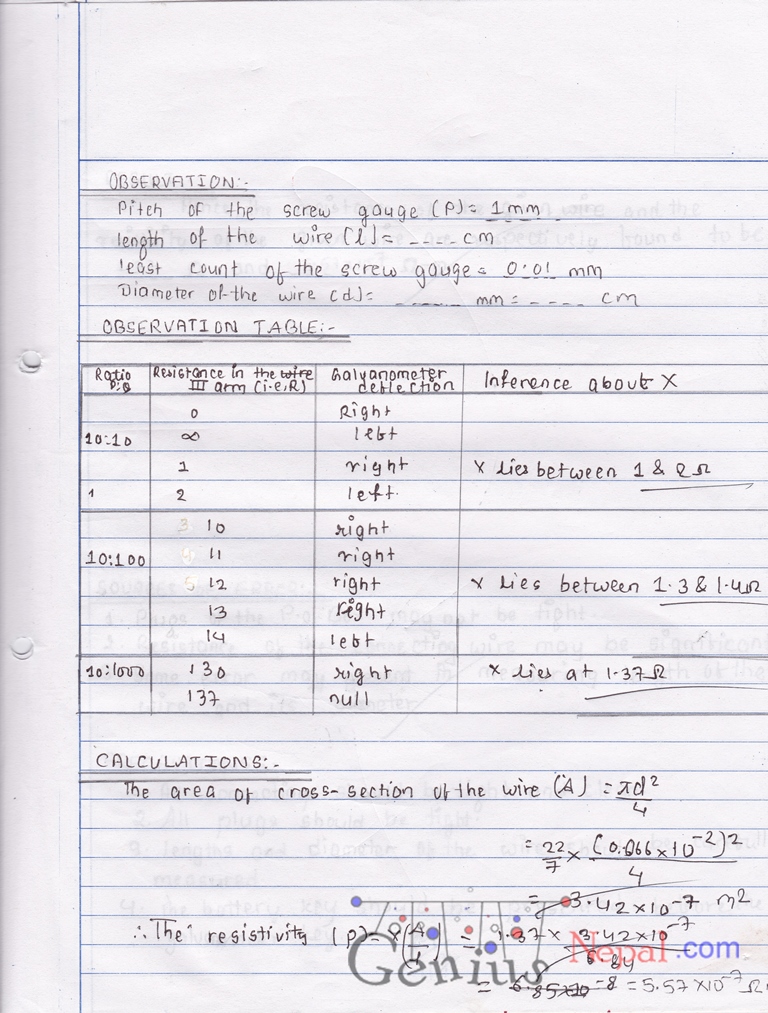 OBSERVATION:-
Pitch of the screw gauge (P)= 1mm
length of the wire (l)= ---- cm
least count of the screw gauge= 0.01 mm
Diameter of the wire (d)= ----- mm = ---- cm
OBSERVATION TABLE:-
Ratio P:Q | Resistance in the wire III arm (i.e,R) | Galvanometer deflection | Inference about X
0 | Right
10:10 | ∞ | left
1 | right | X lies between 1 & 2 Ω
1 | 2 | left.
10 | right
10:100 | 11 | right
12 | right | X lies between 1.3 & 1.4Ω
13 | right
14 | left
10:1000 | 130 | right | X lies at 1.37Ω
137 | null
CALCULATIONS:-
The area of cross-section of the wire (A) = πd²/4
= 22/7 × (0.066×10⁻²)²/4
= 3.42×10⁻⁷ m²
∴ The resistivity (ρ)= X(A/l) = 1.37 × 3.42×10⁻⁷
= 5.57×10⁻⁷ Ω
Genius Nepal.com